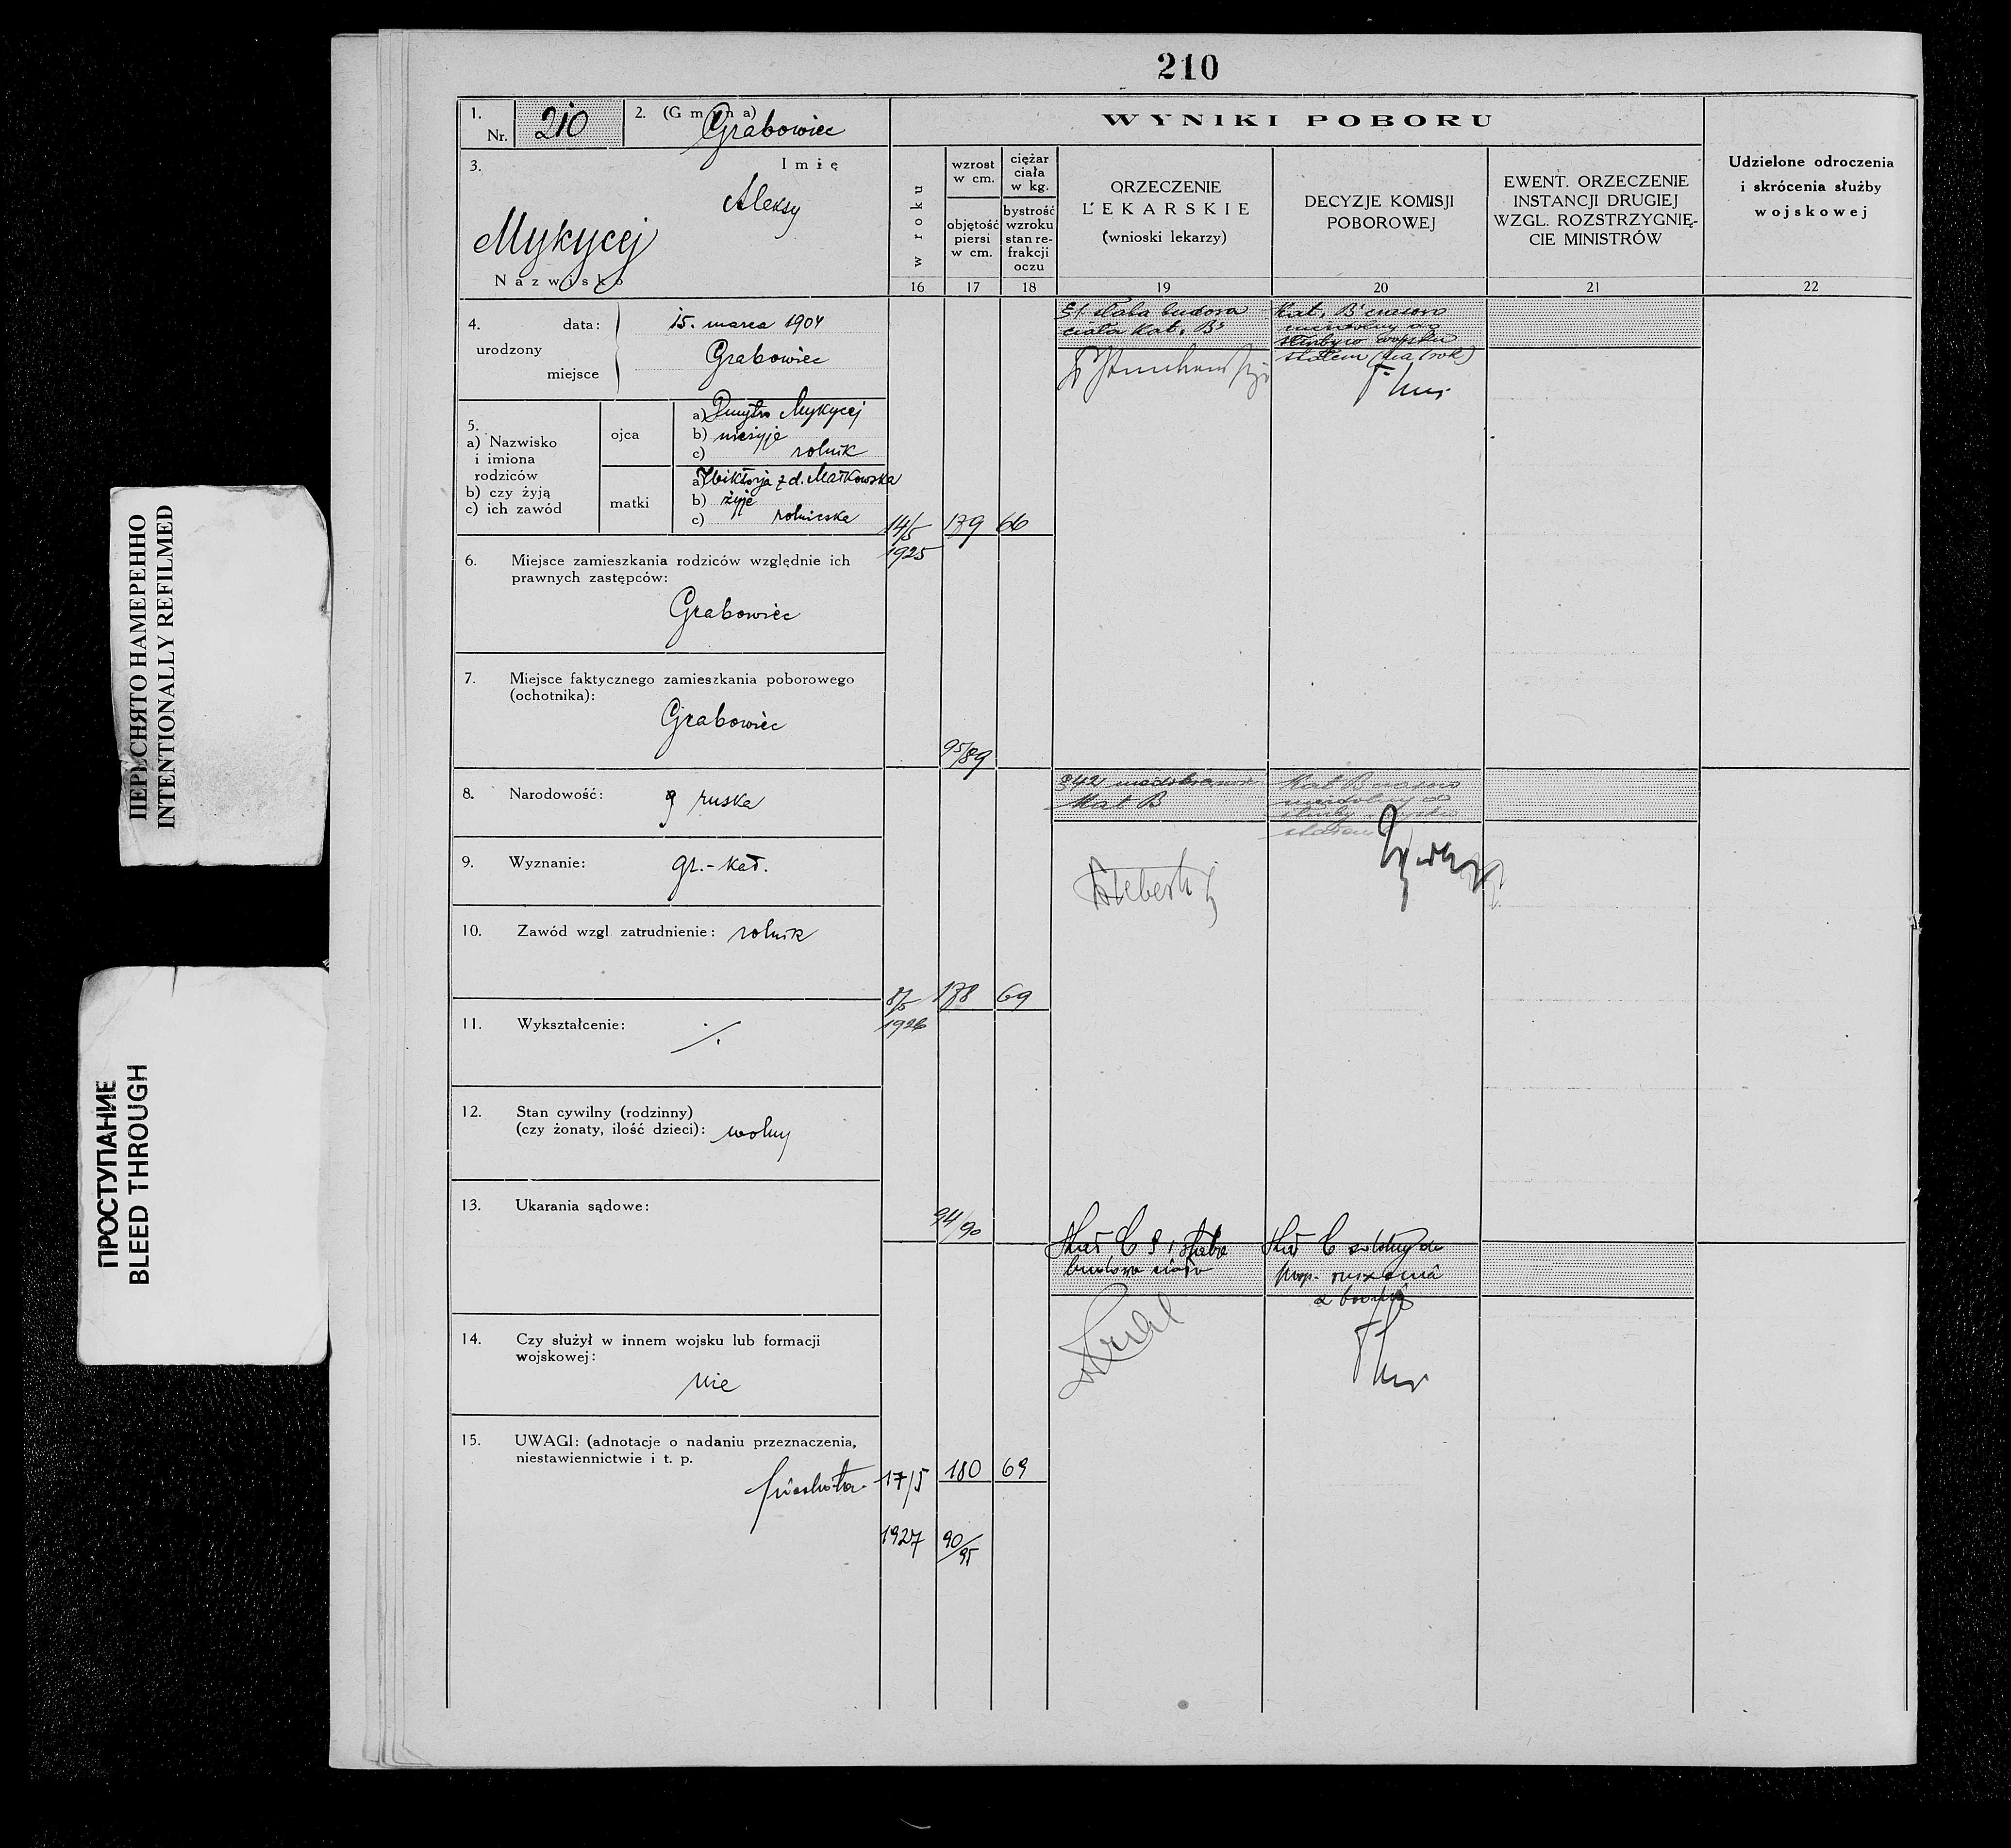 210
1.
Nr. 210
2. (Gmina)
Grabowiec
3.
Imię
Aleksy
Mykycej
Nazwisko
4. data: 15. marca 1904
urodzony
Grabowiec
miejsce
5.
a) Nazwisko
i imiona
rodziców
b) czy żyją
c) ich zawód
ojca
a) Dmytro Mykycej
b) nieżyje
c) rolnik
matki
a) Wiktorja z d. Małkowska
b) żyje
c) rolniczka
6. Miejsce zamieszkania rodziców względnie ich
prawnych zastępców:
Grabowiec
7. Miejsce faktycznego zamieszkania poborowego
(ochotnika):
Grabowiec
8. Narodowość: ruska
9. Wyznanie: gr.-kat.
10. Zawód wzgl. zatrudnienie: rolnik
11. Wykształcenie: ./.
12. Stan cywilny (rodzinny)
(czy żonaty, ilość dzieci): wolny
13. Ukarania sądowe:
14. Czy służył w innem wojsku lub formacji
wojskowej:
nie
15. UWAGI: (adnotacje o nadaniu przeznaczenia,
niestawiennictwie i t. p.
piechota
WYNIKI POBORU
w roku
16
wzrost
w cm.
objętość
piersi
w cm.
17
ciężar
ciała
w kg.
bystrość
wzroku
stan re-
frakcji
oczu
18
ORZECZENIE
LEKARSKIE
(wnioski lekarzy)
19
DECYZJE KOMISJI
POBOROWEJ
20
EWENT. ORZECZENIE
INSTANCJI DRUGIEJ
WZGL. ROZSTRZYGNIĘ-
CIE MINISTRÓW
21
Udzielone odroczenia
i skrócenia służby
wojskowej
22
14/5 179 66
1925
95/89
§1 słaba budowa
ciała kat. B
kat. B czasowo
niezdolny do
służby w wojsku
stałem (na 1 rok)
8/5 178 69
1926
94/90
§42
Kat B
Kat B czasowo
niezdolny do
służby w wojsku
stałem
17/5 180 69
1927 90/95
Kat C § 1 słaba
budowa ciała
Kat C zdolny do
posp. ruszenia
z bronią
ПЕРЕСНЯТО НАМЕРЕННО
INTENTIONALLY REFILMED
ПРОСТУПАНИЕ
BLEED THROUGH